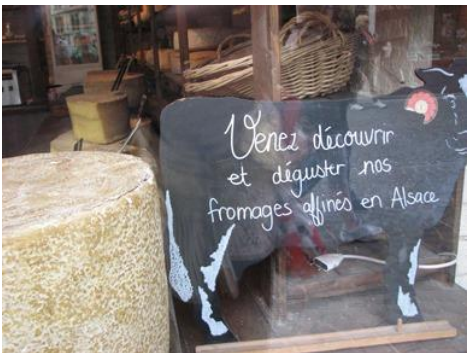 Venez découvrir
et déguster nos
fromages affinés en Alsace